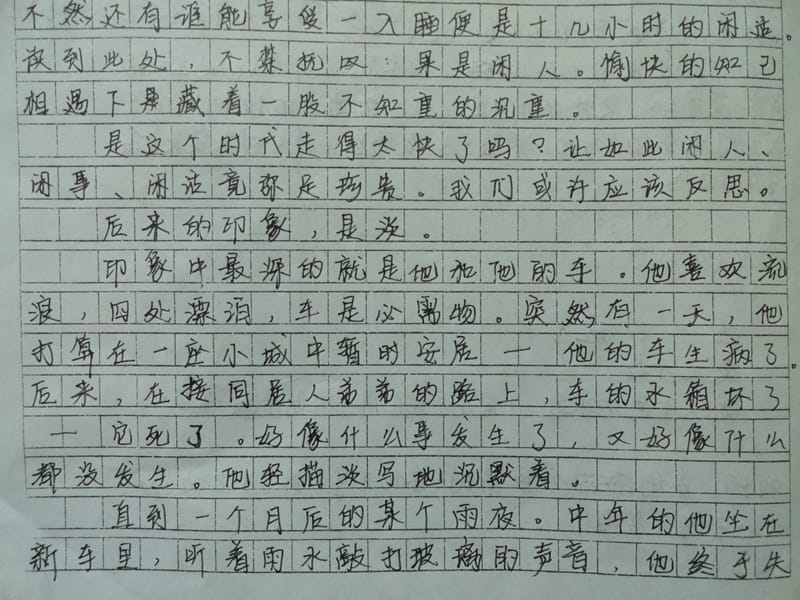 不然还有谁能享受一入睡便是十几小时的闲适。
读到此处，不禁抚叹：果是闲人。愉快的知己
相遇下是藏着一股不知重的沉重。
是这个时代走得太快了吗？让如此闲人、
闲事、闲话竟弥足珍贵。我们或许应该反思。
后来的印象，是淡。
印象中最深的就是他和他的车。他喜欢流
浪，四处漂泊，车是必离物。突然有一天，他
打算在一座小城中暂时安居—他的车生病了。
后来，在接同居人弟弟的路上，车的水箱坏了
—它死了。好像什么事发生了，又好像什么
都没发生。他轻描淡写地沉默着。
直到一个月后的某个雨夜。中年的他坐在
新车里，听着雨水敲打玻璃的声音，他终于失